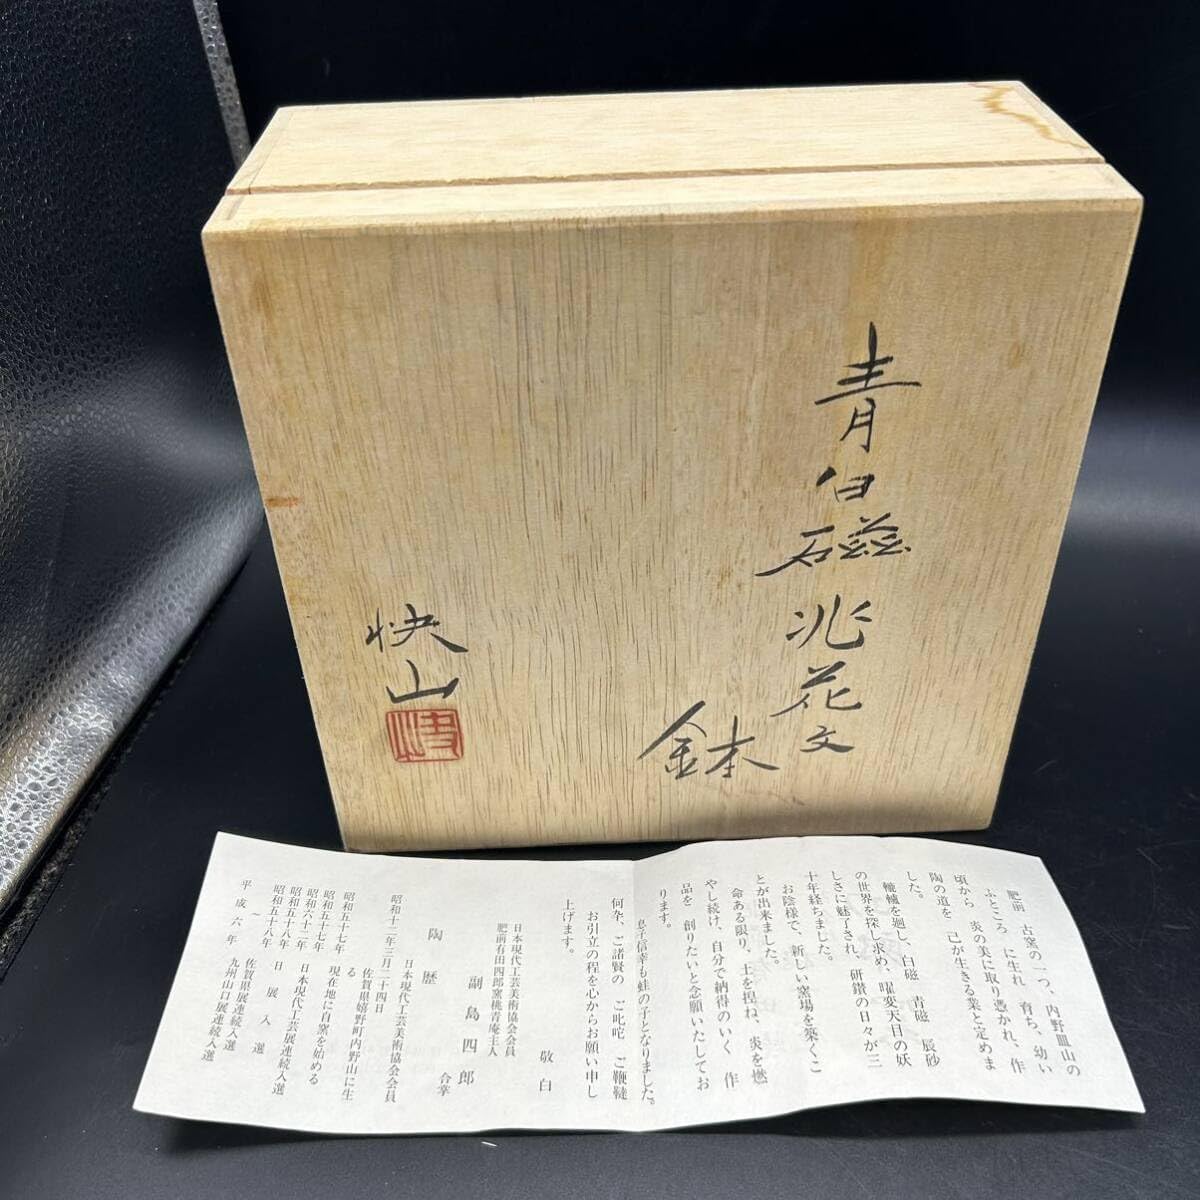 青白磁 兆花文
鉢
快山
肥前 古窯の一つ、内野皿山の
ふところ に生れ 育ち、幼い
頃から 炎の美に取り憑かれ、作
陶の道を 己が生きる業と定めま
した。
轆轤を廻し、白磁 青磁 辰砂
の世界を探し求め、曜変天目の妖
しさに魅了され、研鑽の日々が三
十年経ちました。
お陰様で、新しい窯場を築くこ
とが出来ました。
命ある限り、土を捏ね、炎を燃
やし続け、自分で納得のいく 作
品を 創りたいと念願いたしてお
ります。
息子信幸も蛙の子となりました。
何卒、ご諸賢の ご叱咤 ご鞭韃
お引立の程を心からお願い申し
上げます。
敬白
日本現代工芸美術協会会員
肥前有田四郎窯桃青庵主人
副島四郎
合掌
陶歴
日本現代工芸美術協会会員
昭和十二年三月二十四日
佐賀県嬉野町内野山に生
る
昭和五十七年 現在地に自窯を始める
昭和五十七年
昭和六十二年 日本現代工芸展連続入選
昭和五十八年 日展入選
昭和五十八年
〜 佐賀県展連続入選
平成六年 九州山口展連続入選